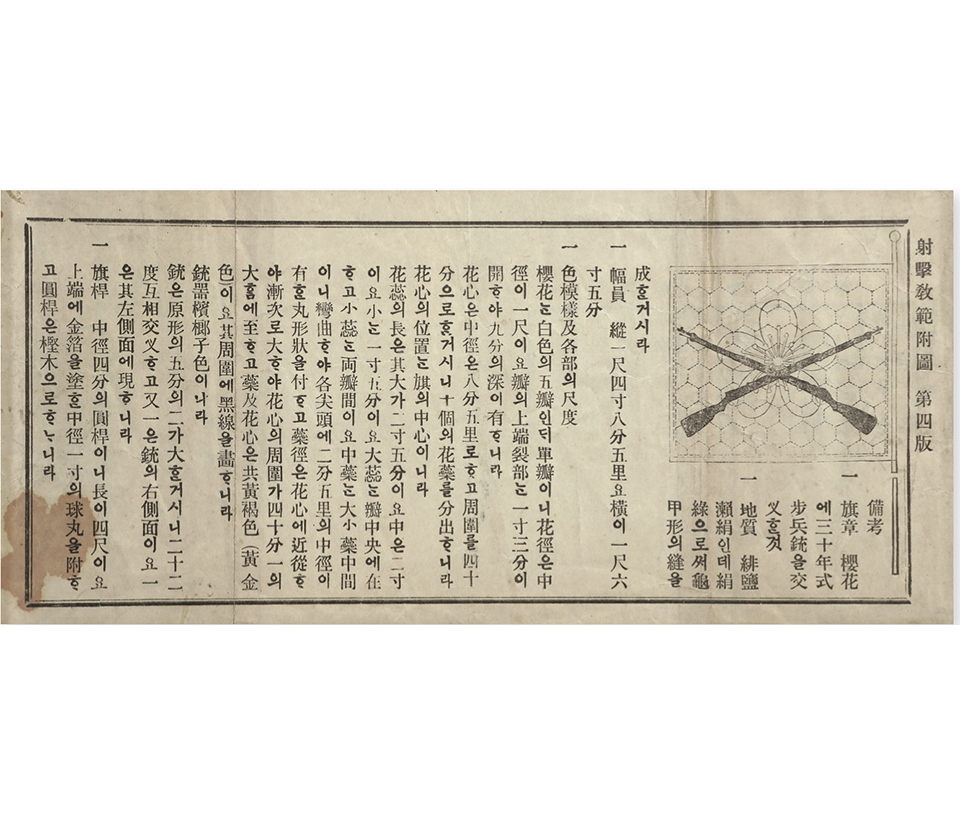 射擊敎範附圖 第四版
備考
一 旗章 櫻花
에三十年式
步兵銃을交
乂ᄒᆞᆯ것
一 地質 緋鹽
瀨絹인데絹
綠으로써龜
甲形의縫을
成ᄒᆞᆯ거시라
一 幅員 縱一尺四寸八分五里요橫이一尺六
寸五分
一 色模樣及各部의尺度
櫻花ᄂᆞᆫ白色의五瓣인ᄃᆡ單瓣이니花徑은中
徑이一尺이요瓣의上端裂部ᄂᆞᆫ一寸三分이
開ᄒᆞ야九分의深이有ᄒᆞ니라
花心은中徑은八分五里로ᄒᆞ고周圍를四十
分으로ᄒᆞᆯ거시니十個의花蘂를分出ᄒᆞ니라
花心의位置ᄂᆞᆫ旗의中心이니라
花蕊의長은其大가二寸五分이요中은二寸
이요小ᄂᆞᆫ一寸五分이요大蕊ᄂᆞᆫ瓣中央에在
ᄒᆞ고小蕊ᄂᆞᆫ両瓣間이요中蘂ᄂᆞᆫ大小蘂中間
이니彎曲ᄒᆞ야各尖頭에二分五里의中徑이
有ᄒᆞᆫ丸形狀을付ᄒᆞ고蘂徑은花心에近從ᄒᆞ
야漸次로大ᄒᆞ야花心의周圍가四十分一의
大ᄒᆞᆷ에至ᄒᆞ고蘂及花心은共黃褐色(黃金
色)이요其周圍에黑線을畵ᄒᆞ니라
銃器檳榔子色이니라
銃은原形의五分의二가大ᄒᆞᆯ거시니二十二
度互相交乂ᄒᆞ고又一은銃의右側面이요一
은其左側面에現ᄒᆞ니라
一 旗桿 中徑四分의圓桿이니長이四尺이요
上端에金箔을塗ᄒᆞᆫ中徑一寸의球丸을附ᄒᆞ
고圓桿은樫木으로ᄒᆞᄂᆞ니라